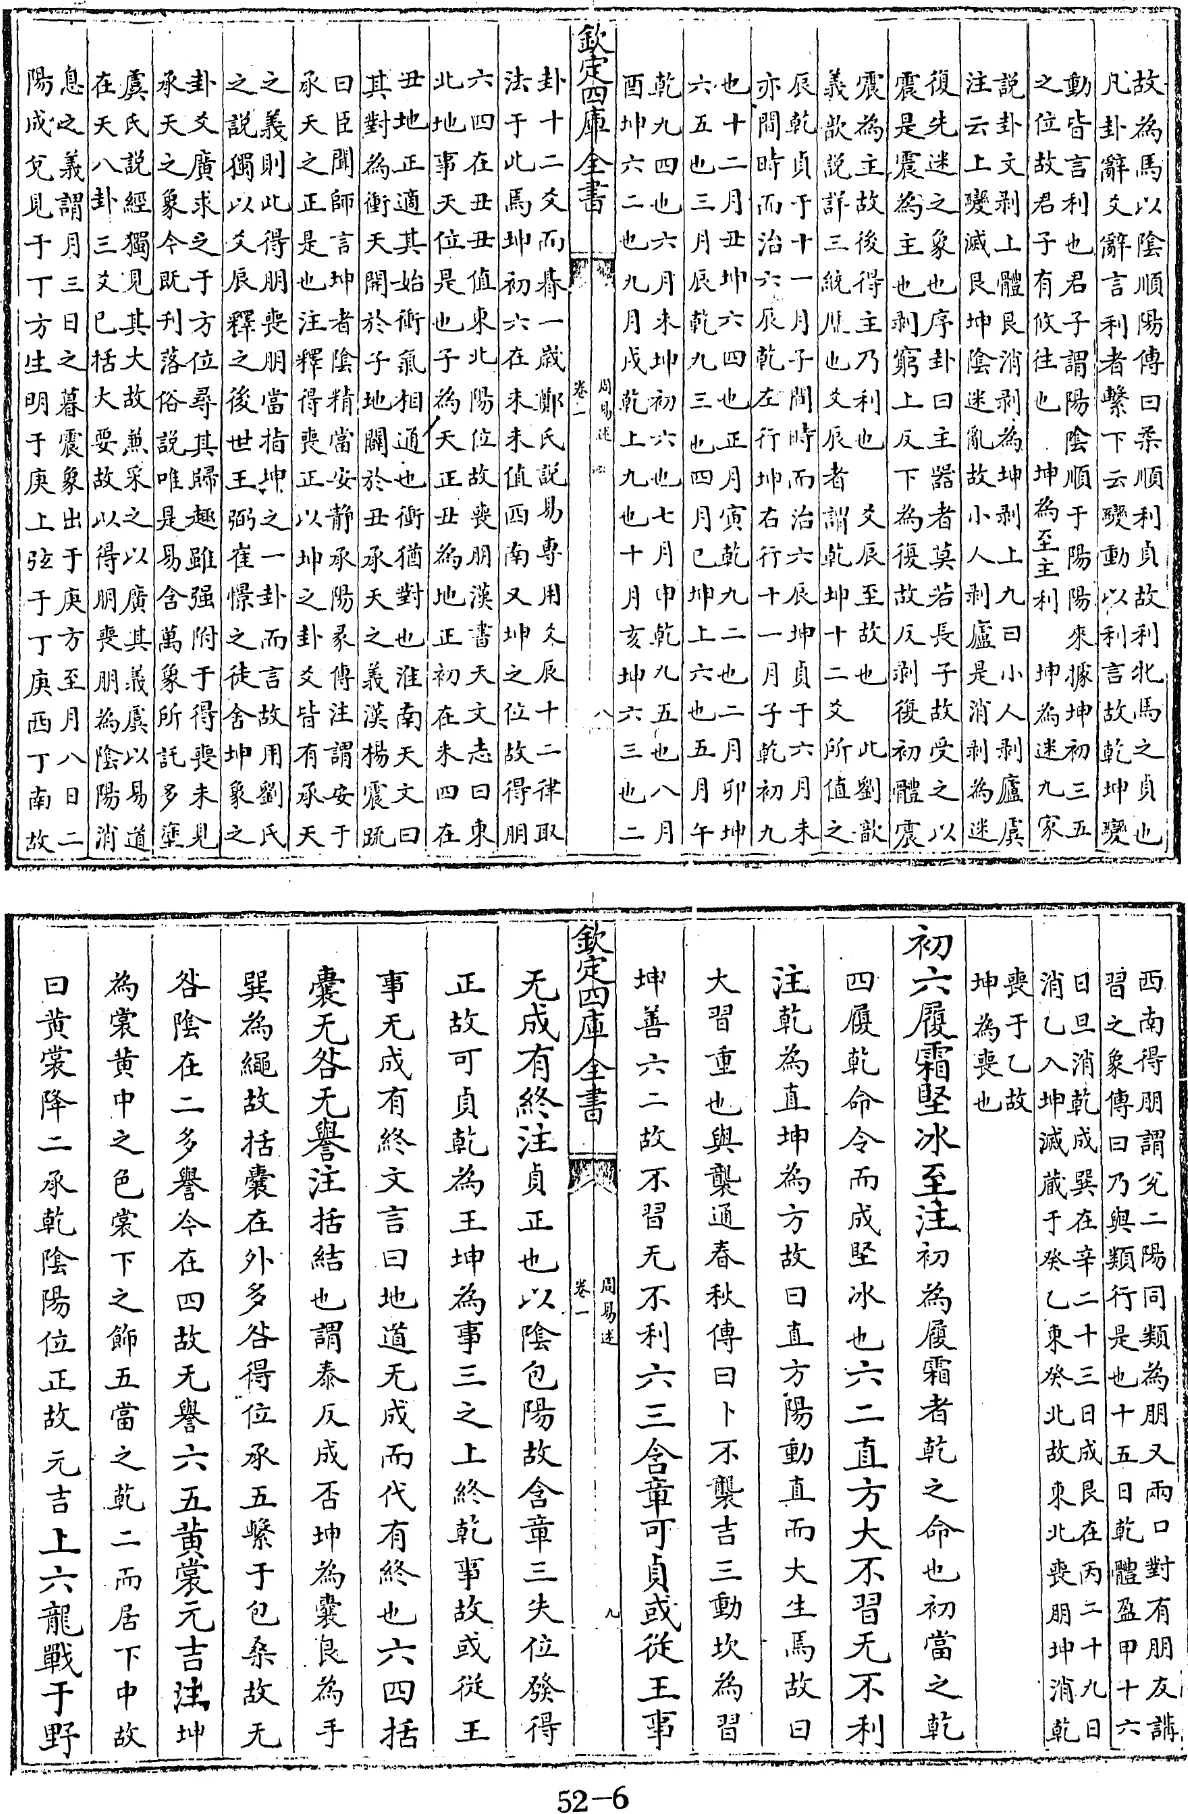 故為馬以陰順陽傳曰柔順利貞故利牝馬之貞也
凡卦辭爻辭言利者繫下云變動以利言故乾坤變
動皆言利也君子謂陽陰順于陽陽來據坤初三五
之位故君子有攸往也　坤為至主利　坤為迷九家
說卦文剥上體艮消剥為坤剥上九曰小人剥廬虞
注云上變滅艮坤陰迷亂故小人剥廬是消剥為迷
復先迷之象也序卦曰主器者莫若長子故受之以
震是震為主也剥窮上反下為復故反剥復初體震
震為主故後得主乃利也　爻辰至故也　此劉歆
義歆說詳三統厯也爻辰者謂乾坤十二爻所值之
辰乾貞于十一月子間時而治六辰坤貞于六月未
亦間時而治六辰乾左行坤右行十一月子乾初九
也十二月丑坤六四也正月寅乾九二也二月卯坤
六五也三月辰乾九三也四月巳坤上六也五月午
乾九四也六月未坤初六也七月申乾九五也八月
酉坤六二也九月戌乾上九也十月亥坤六三也二
欽定四庫全書
周易述
卷一
八
卦十二爻而朞一歲鄭氏說易專用爻辰十二律取
法于此焉坤初六在未未值西南又坤之位故得朋
六四在丑丑值東北陽位故喪朋漢書天文志曰東
北地事天位是也子為天正丑為地正初在未四在
丑地正適其始衝氣相通也衝猶對也淮南天文曰
其對為衝天開於子地闢於丑承天之義漢楊震疏
曰臣聞師言坤者陰精當安靜承陽彖傳注謂安于
承天之正是也注釋得喪正以坤之卦爻皆有承天
之義則此得朋喪朋當指坤之一卦而言故用劉氏
之說獨以爻辰釋之後世王弼崔憬之徒舍坤象之
卦爻廣求之于方位尋其歸趣雖强附于得喪未見
承天之象今既刊落俗說唯是易含萬象所託多塗
虞氏說經獨見其大故兼采之以廣其義虞以易道
在天八卦三爻已括大要故以得朋喪朋為陰陽消
息之義謂月三日之暮震象出于庚方至月八日二
陽成兌見于丁方生明于庚上弦于丁庚西丁南故
西南得朋謂兌二陽同類為朋又兩口對有朋友講
習之象傳曰乃與類行是也十五日乾體盈甲十六
日旦消乾成巽在辛二十三日成艮在丙二十九日
消乙入坤滅藏于癸乙東癸北故東北喪朋坤消乾
喪于乙故
坤為喪也
初六履霜堅冰至注初為履霜者乾之命也初當之乾
四履乾命令而成堅冰也六二直方大不習无不利
注乾為直坤為方故曰直方陽動直而大生焉故曰
大習重也與襲通春秋傳曰卜不襲吉三動坎為習
坤善六二故不習无不利六三含章可貞或從王事
欽定四庫全書
周易述
卷一
九
无成有終注貞正也以陰包陽故含章三失位發得
正故可貞乾為王坤為事三之上終乾事故或從王
事无成有終文言曰地道无成而代有終也六四括
囊无咎无譽注括結也謂泰反成否坤為囊艮為手
巽為繩故括囊在外多咎得位承五繫于包桑故无
咎陰在二多譽今在四故无譽六五黃裳元吉注坤
為裳黃中之色裳下之飾五當之乾二而居下中故
曰黃裳降二承乾陰陽位正故元吉上六龍戰于野
52-6